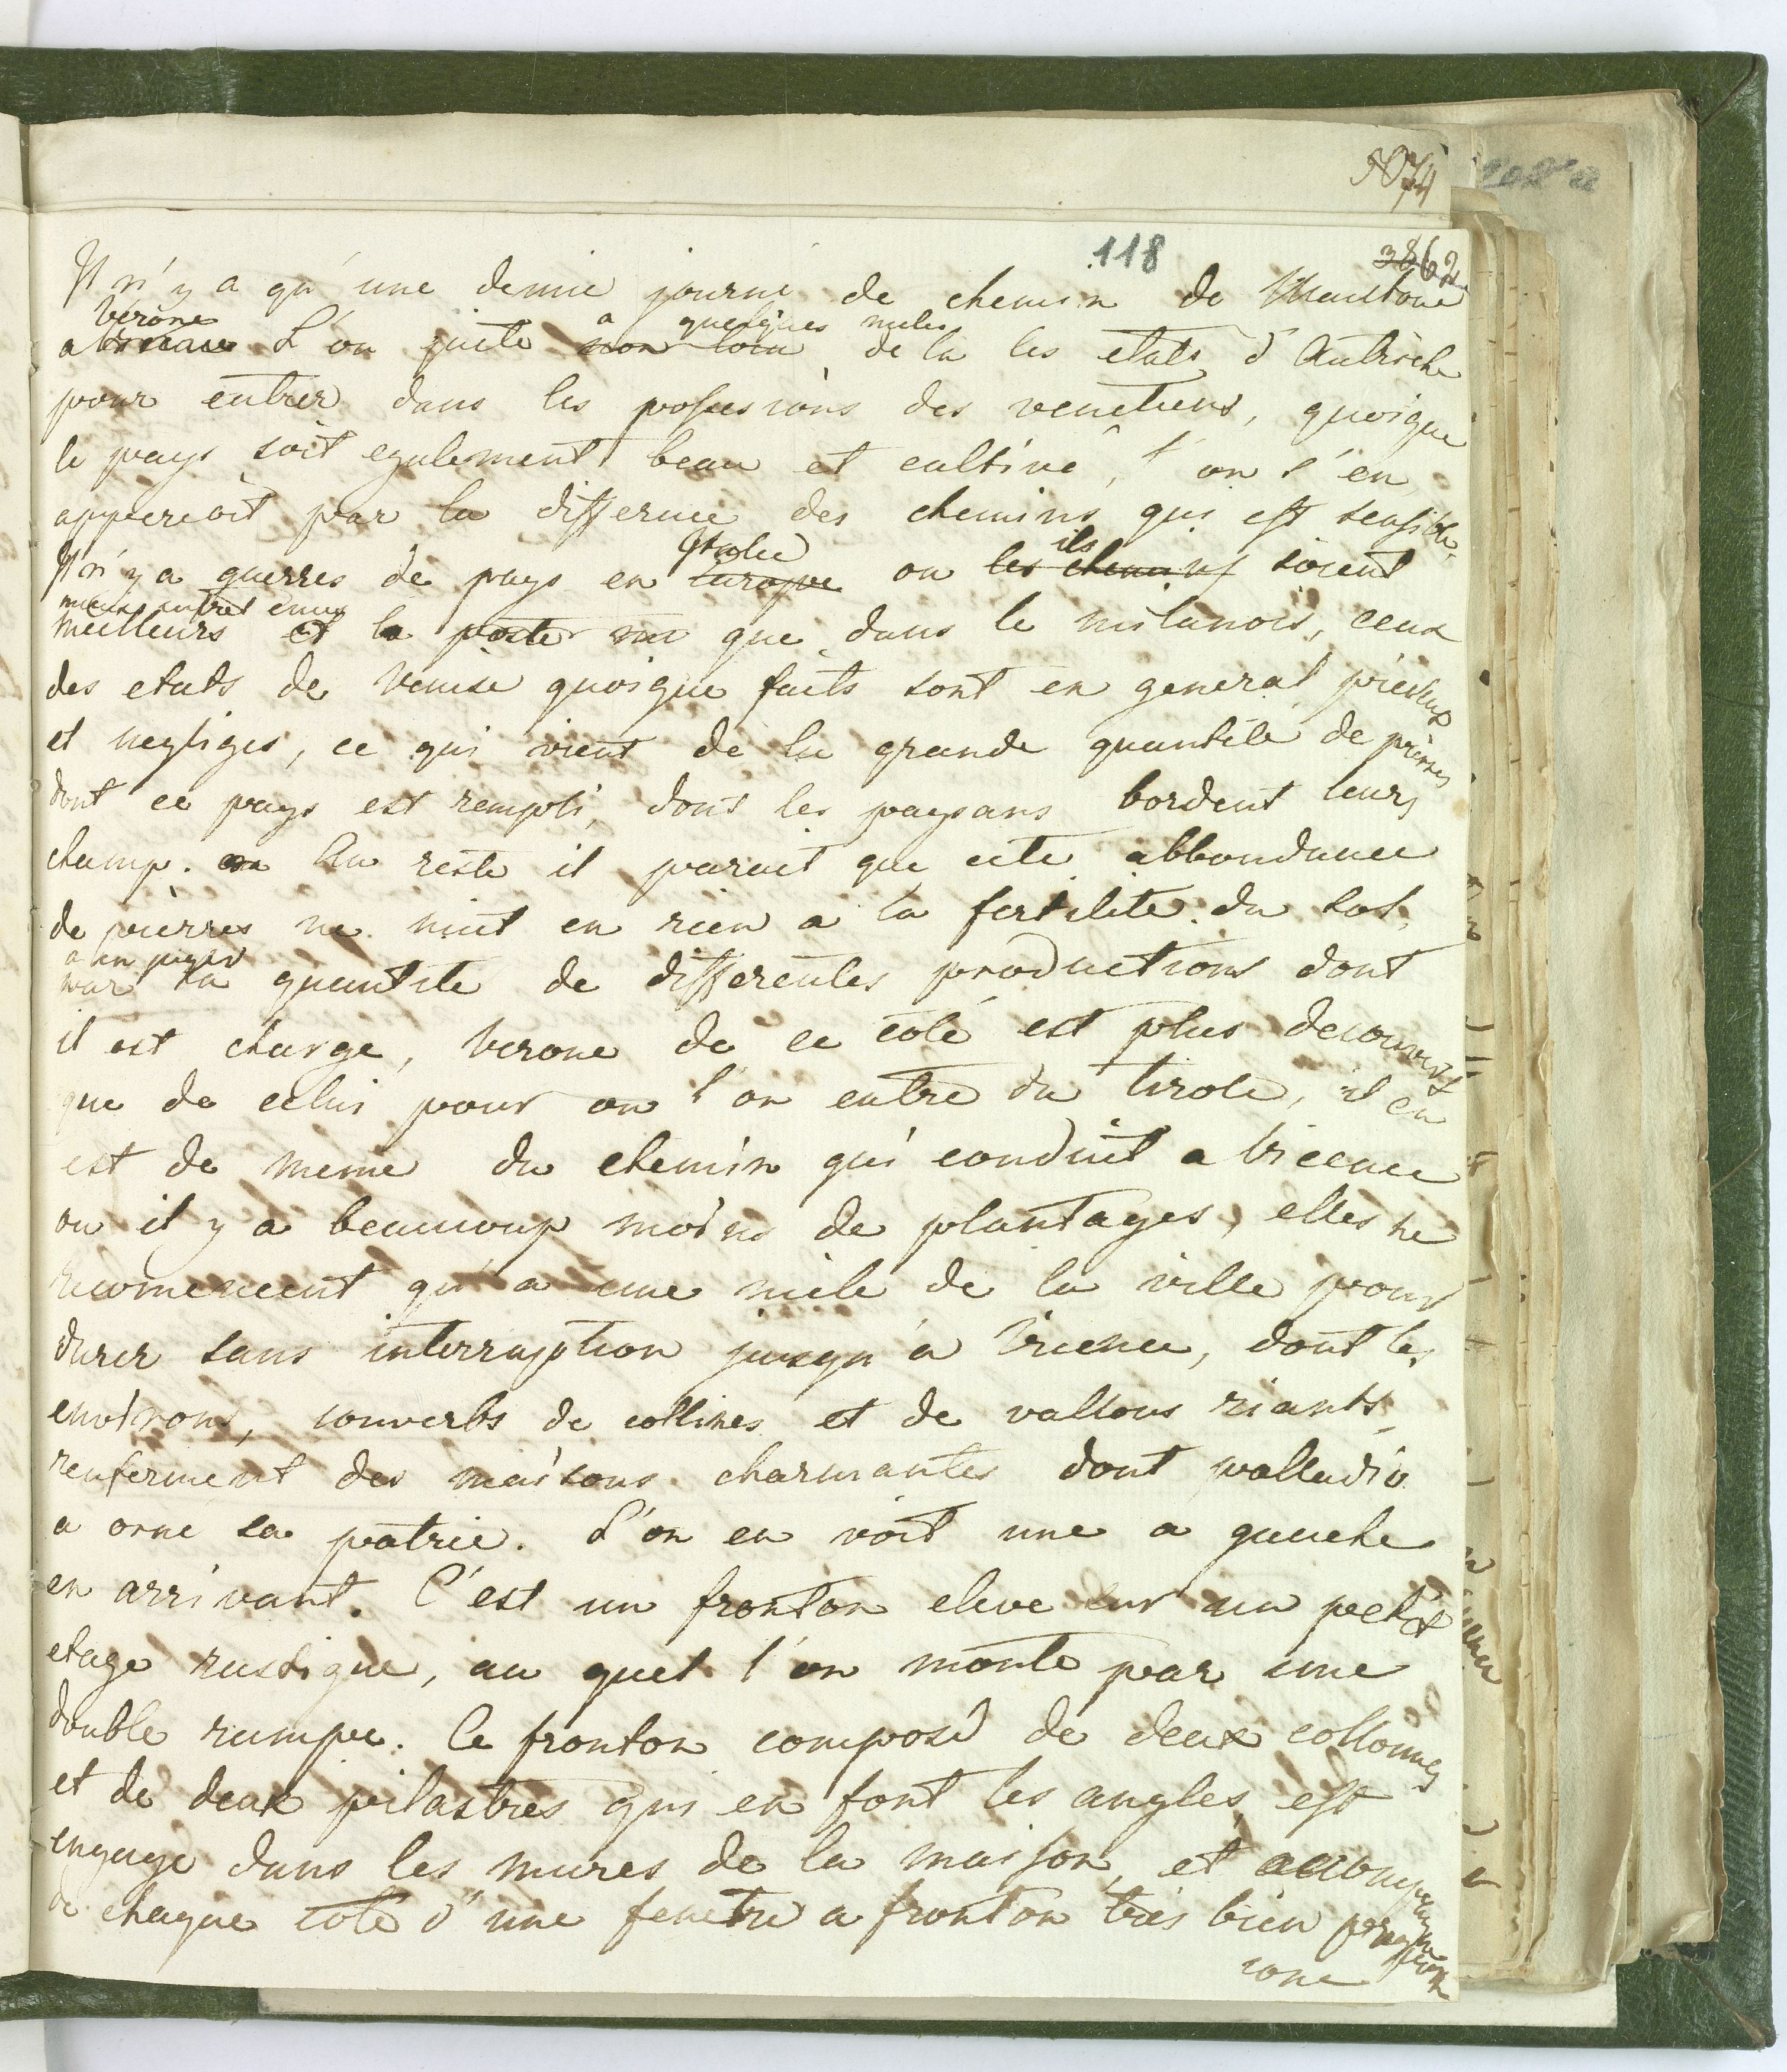 118
Il n'y a qu'une demie journé de chemin de Mantoue
a Vérone L'on quite a quelques miles de la les etats d'Autriche
pour entrer dans les possessions des venetiens, quoique
le pays soit egalement beau et cultivé, l'on s'en
apperçoit par la difference des chemins qui est sensible.
Il n'y a guerres de pays en Italie ou ils soient
meilleurs mieux entretenus que dans le milanois, ceux
des etats de Venise quoique faits sont en general pierreux
et negliges, ce qui vient de la grande quantité de pierres
dont ce pays est rempli, dont les paysans bordent leurs
champ. Au reste il parait que cete abbondance
de pierres ne nuit en rien a la fertilité du sol,
a en juger par la quantite de differentes productions dont
il est charge, Verone de ce coté est plus decouvert
que de celui pour ou l'on entre du tirole, il en
est de meme du chemin qui conduit a Vicence
ou il y a beaucoup moins de plantages, elles ne
recomencent qu'a une mile de la ville pour
durer sans interruption jusqu'a Vicence, dont les
environs, couverts de collines et de vallons riants,
renferment des maisons charmantes dont palladio
a orne sa patrie. L'on en voit une a gauche
en arrivant. C'est un fronton eleve sur un petit
etage rustique, au quel l'on monte par une
double rampe. Ce fronton composé de deux collonnes
et de deux pilastres qui en font les angles est
engage dans les mures de la maison, et accompagné
de chaque coté d'une fenetre a fronton très bien